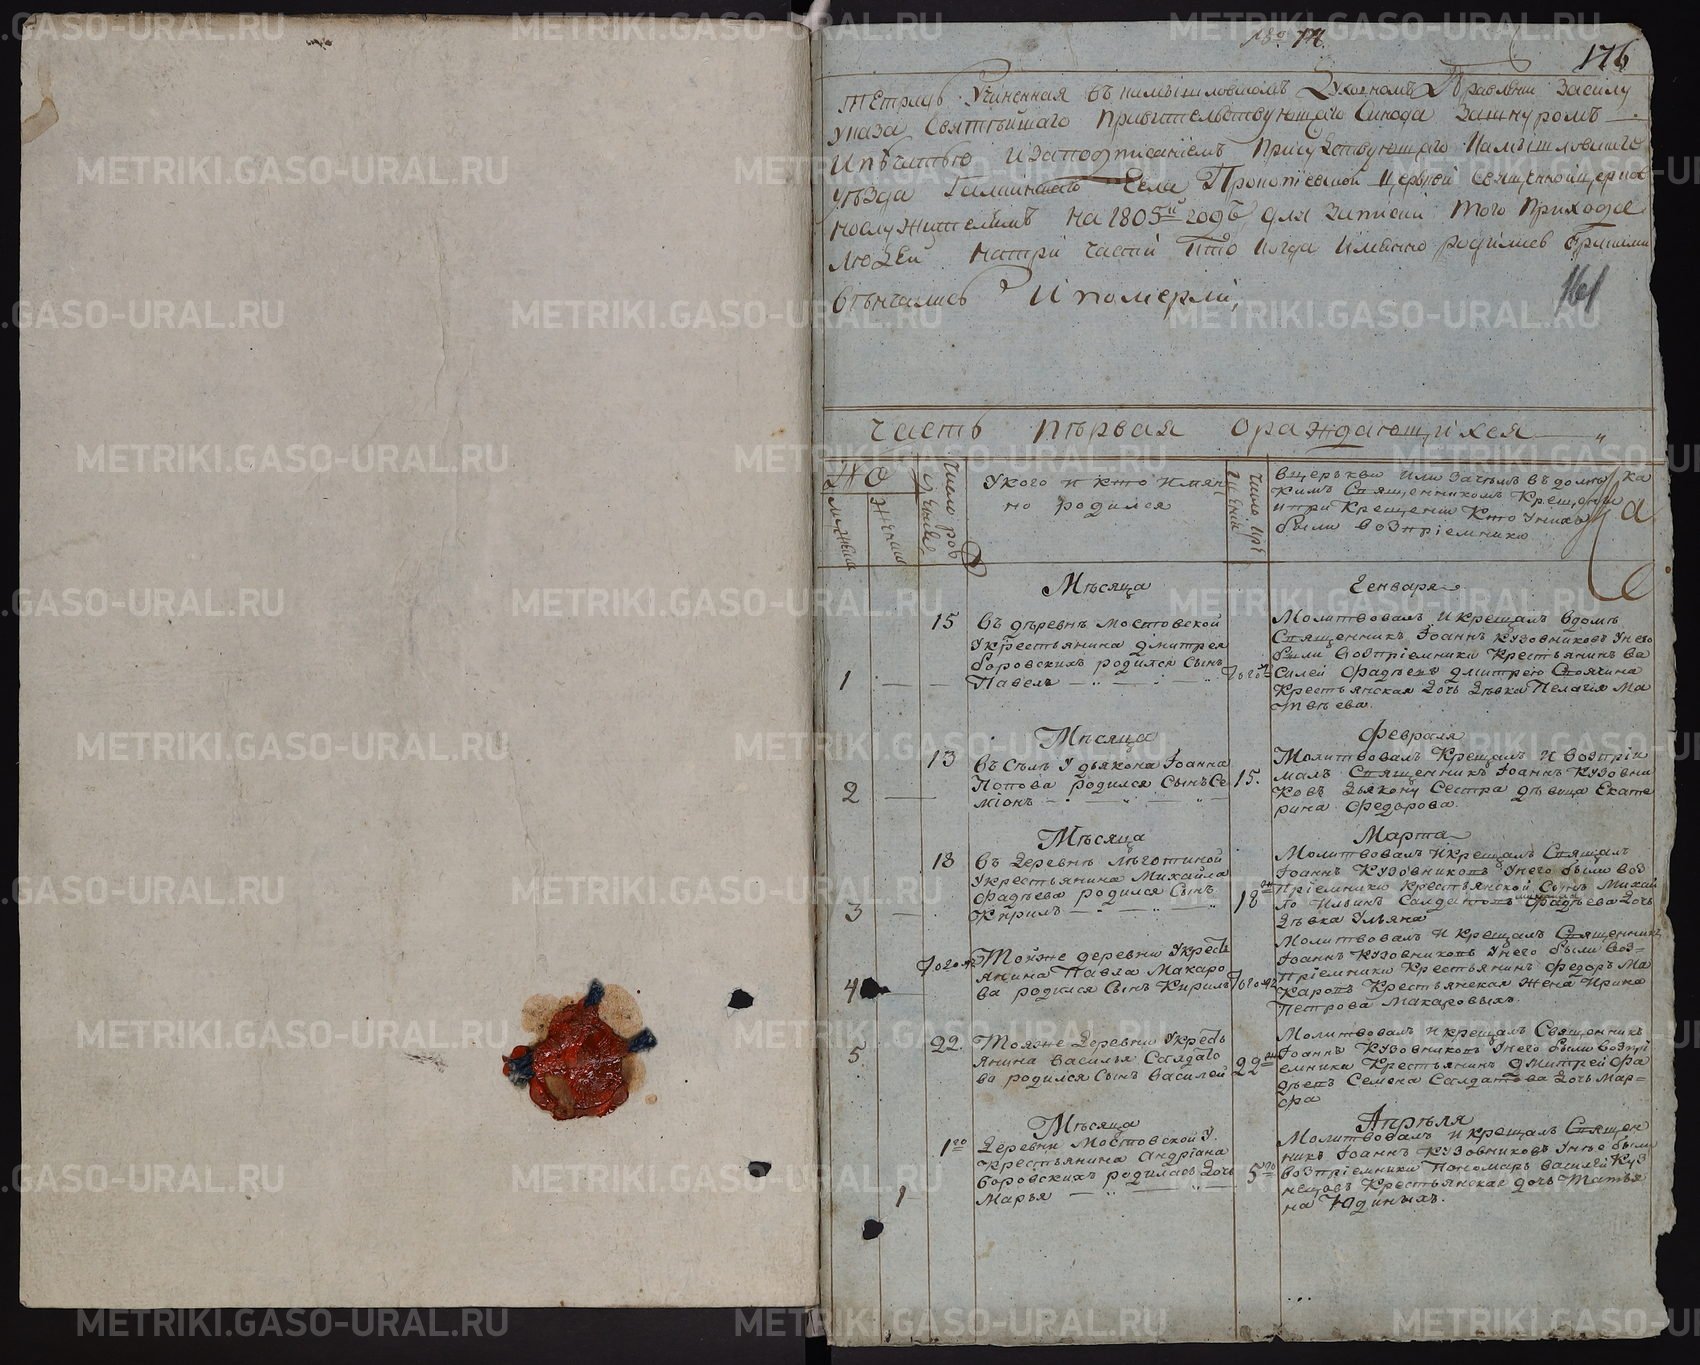 176
Тетрадь Учиненная въ камышловскомъ Духовномъ Правлении Засилу
указа Святѣйшаго Правительствующаго Синода Зашнуромъ
Ипѣчатью изаподписаниемъ Присудствующаго Камышловскаго
уѣзда Села Прокопіевской церкви священноицерков
нослужителямъ на 1805й годъ для записки того Прихода
людей натри части кто когда имянно родились бракомъ
вѣнчались И померли,
161
Часть первая ораждающихся
Число рож
дения
Укого и кто имян
но родился
Число кре
щения
вцеркви или зачѣмъ въ дому ка
кимъ Священникомъ Крещены
ипри Крещении Кто Унихъ
были воЗпріемники
Мѣсяца Генваря
15 въ деревнѣ Мостовской
Укрестьянина дмитрея
боровскихъ родился Сынъ
1 Павелъ
Молитвовалъ И крещалъ вдомѣ
Священникъ Іоаннъ Кузовниковъ Унего
были воЗпріемники Крестьянинъ ва
силей Фадѣевъ дмитрею
Крестьянская дочь дѣвка Пелагія Ма
твѣева
Мѣсяца Февраля
13 въ Селѣ У дьякона Іоанна
Попова родился Сынъ Се
2 міонъ
15. Молитвовалъ Крещалъ И воЗпріи
малъ Священникъ Іоаннъ Кузовни
ковъ дьякону Сестра дѣвица Екате
рина Федорова
Мѣсяца Марта
18 въ деревнѣ
Укрестьянина Михайла
Фадѣева родился Сынъ
3 Кирилъ
18 Молитвовалъ И крещалъ
Іоаннъ Кузовниковъ Унего были воЗ
пріемники Крестьянской Сынъ Михай
ло Ильинъ Фадѣева дочь
дѣвка Ульяна
4 Тойже деревни Укресть
янина Павла Макаро
ва родился Сынъ Кирилъ
Молитвовалъ И крещалъ Священникъ
Іоаннъ Кузовниковъ Унего были воЗ=
пріемники Крестьянинъ Федоръ Ма
каровъ Крестьянская жена Ирина
Петрова Макаровыхъ.
5 22. Тояже деревни Укресть
янина Василья Салдато
ва родился Сынъ Василей
22 Молитвовалъ И крещалъ Священникъ
Іоаннъ Кузовниковъ Унего были воЗпрі
емники Крестьянинъ дмитрей Фа
дѣевъ Семена Салдатова дочь Мар=
фа
Мѣсяца Апрѣля
1го деревни Мостовской У
крестьянина Андріана
боровскихъ родилась дочь
1 Марья
5го Молитвовалъ И крещалъ Священ
никъ Іоаннъ Кузовниковъ Унее были
воЗпріемники Пономарь Василей Куз
нецовъ Крестьянская дочь Татья
на Юдиныхъ.
METRIKI.GASO-URAL.RU